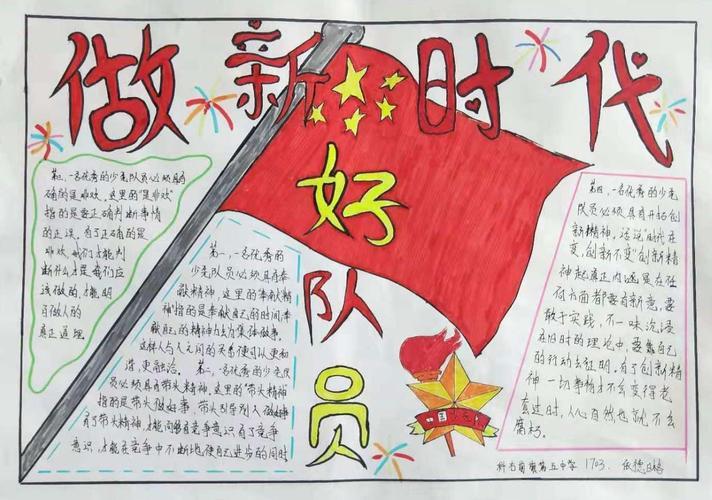 做新时代
好
队
员
第三、一名优秀的少先队员必须具有
正确的是非观，这里的"是非观"
指的是要正确判断事情
的正误，有了正确的是
非观，我们才能判
断什么才是我们应
该做的，才能明
白做人的
真正道理
第一、一名优秀的
少先队员必须具有奉
献精神，这里的"奉献精
神"指的是奉献自己的时间，奉
献自己的精神力量为集体做事。
这样人与人之间的关系便可以更和
谐，更融洽。第二、一名优秀的少先队
员必须具有带头精神，这里的"带头精神"
指的是带头做好事，带头引导别人做好事
有了带头精神，才能够有竞争意识，有了竞争
意识，才能在竞争中不断地使自己进步的同时
第四、一名优秀的少先
队员必须具有开拓创
新精神，话说"时代在
变，创新不变"创新精
神起真正内涵是在任
何方面都要有新意，要
敢于实践，不一味沉浸
在旧时的理论中，要靠自己
的行动去证明，有了创新精
神一切事情才不会变得老
套过时，人心自然也就不会
腐朽。
中国少先队
第五中学 1703.